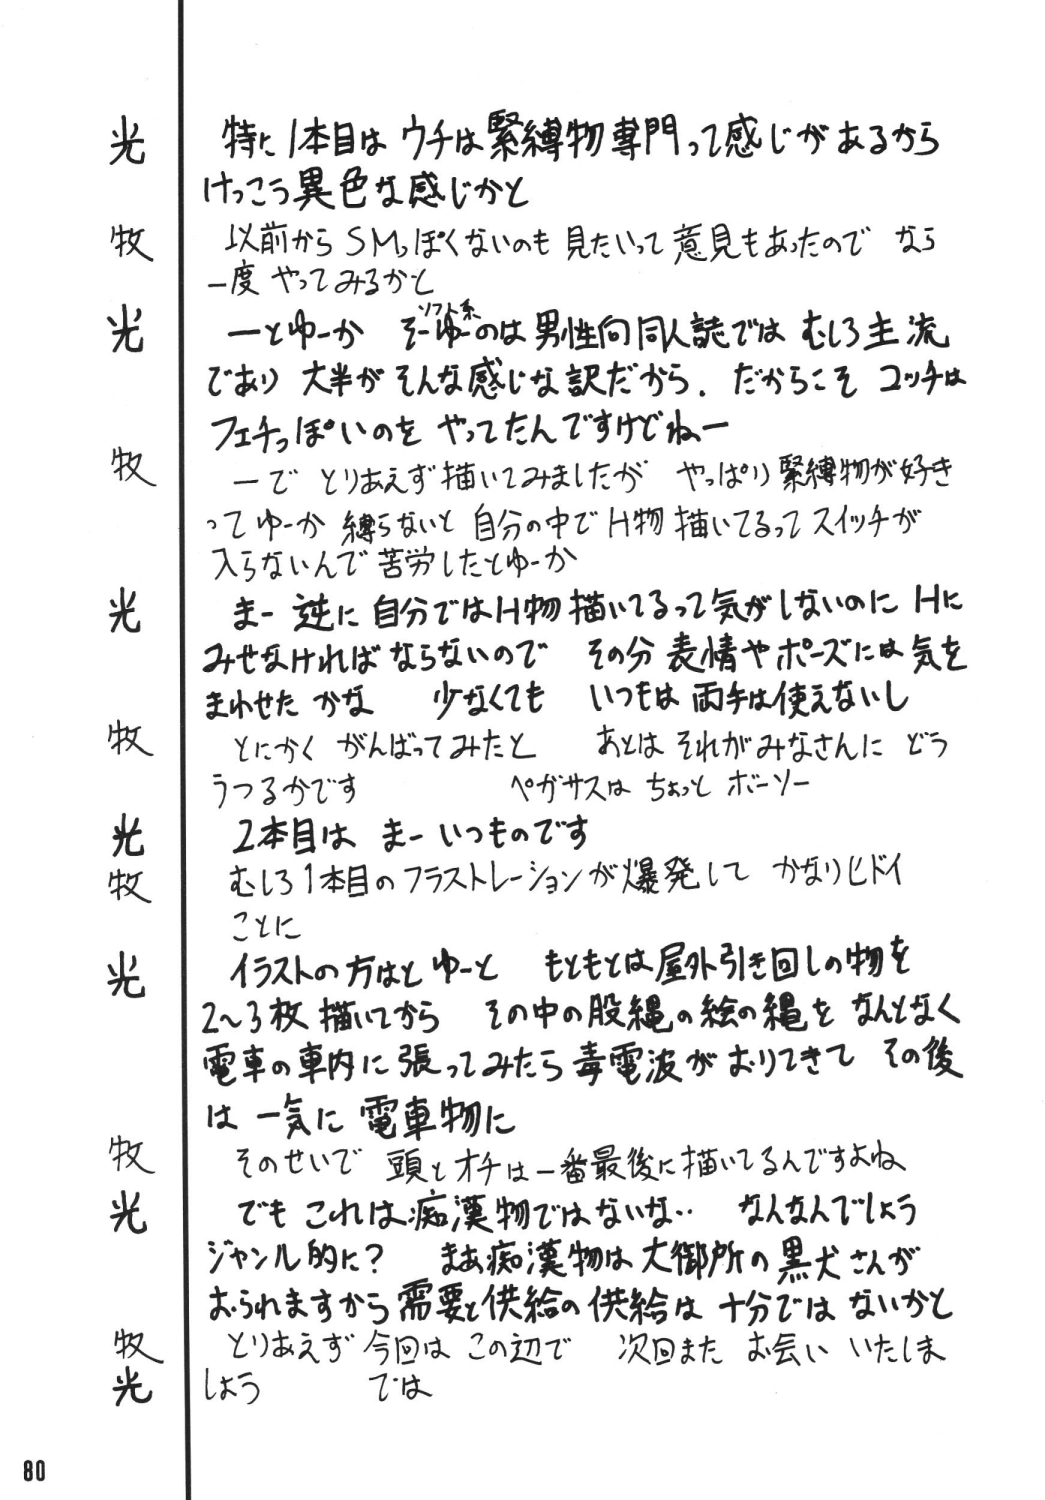 光 特に1本目は ウチは緊縛物専門って感じがあるから
けっこう異色な感じかと
牧 以前からSMっぽくないのも 見たいって意見もあったので なら
一度 やってみるかと
光 ーとゆーか そーゆーのは男性向同人誌では むしろ主流
ソフト系
であり 大半が そんな感じな訳だから. だからこそ コッチは
フェチっぽいのを やってたんですけどねー
牧 ーで とりあえず描いてみましたが やっぱり緊縛物が好き
ってゆーか 縛らないと 自分の中でH物 描いてるってスイッチが
入らないんで苦労したとゆーか
光 まー 逆に 自分ではH物描いてるって気がしないのに Hに
みせなければならないので その分 表情やポーズには気を
まわせた かな 少なくても いつもは 両手は使えないし
牧 とにかく がんばってみたと あとは それがみなさんに どう
うつるかです ペガサスは ちょっと ボーソー
光 2本目は まー いつものです
牧 むしろ1本目のフラストレーションが爆発して かなりヒドイ
ことに
光 イラストの方はと ゆーと もともとは屋外引き回しの物を
2〜3枚 描いてから その中の股縄の絵の縄を なんとなく
電車の車内に張ってみたら毒電波がおりてきて その後
は 一気に 電車物に
牧 そのせいで 頭とオチは一番最後に描いてるんですよね
光 でも これは痴漢物ではないな‥ なんなんでしょう
ジャンル的に? まあ痴漢物は大御所の黒犬さんが
おられますから需要と供給の供給は 十分では ないかと
牧 とりあえず今回は この辺で 次回また お会い いたしま
光 しょう では
80